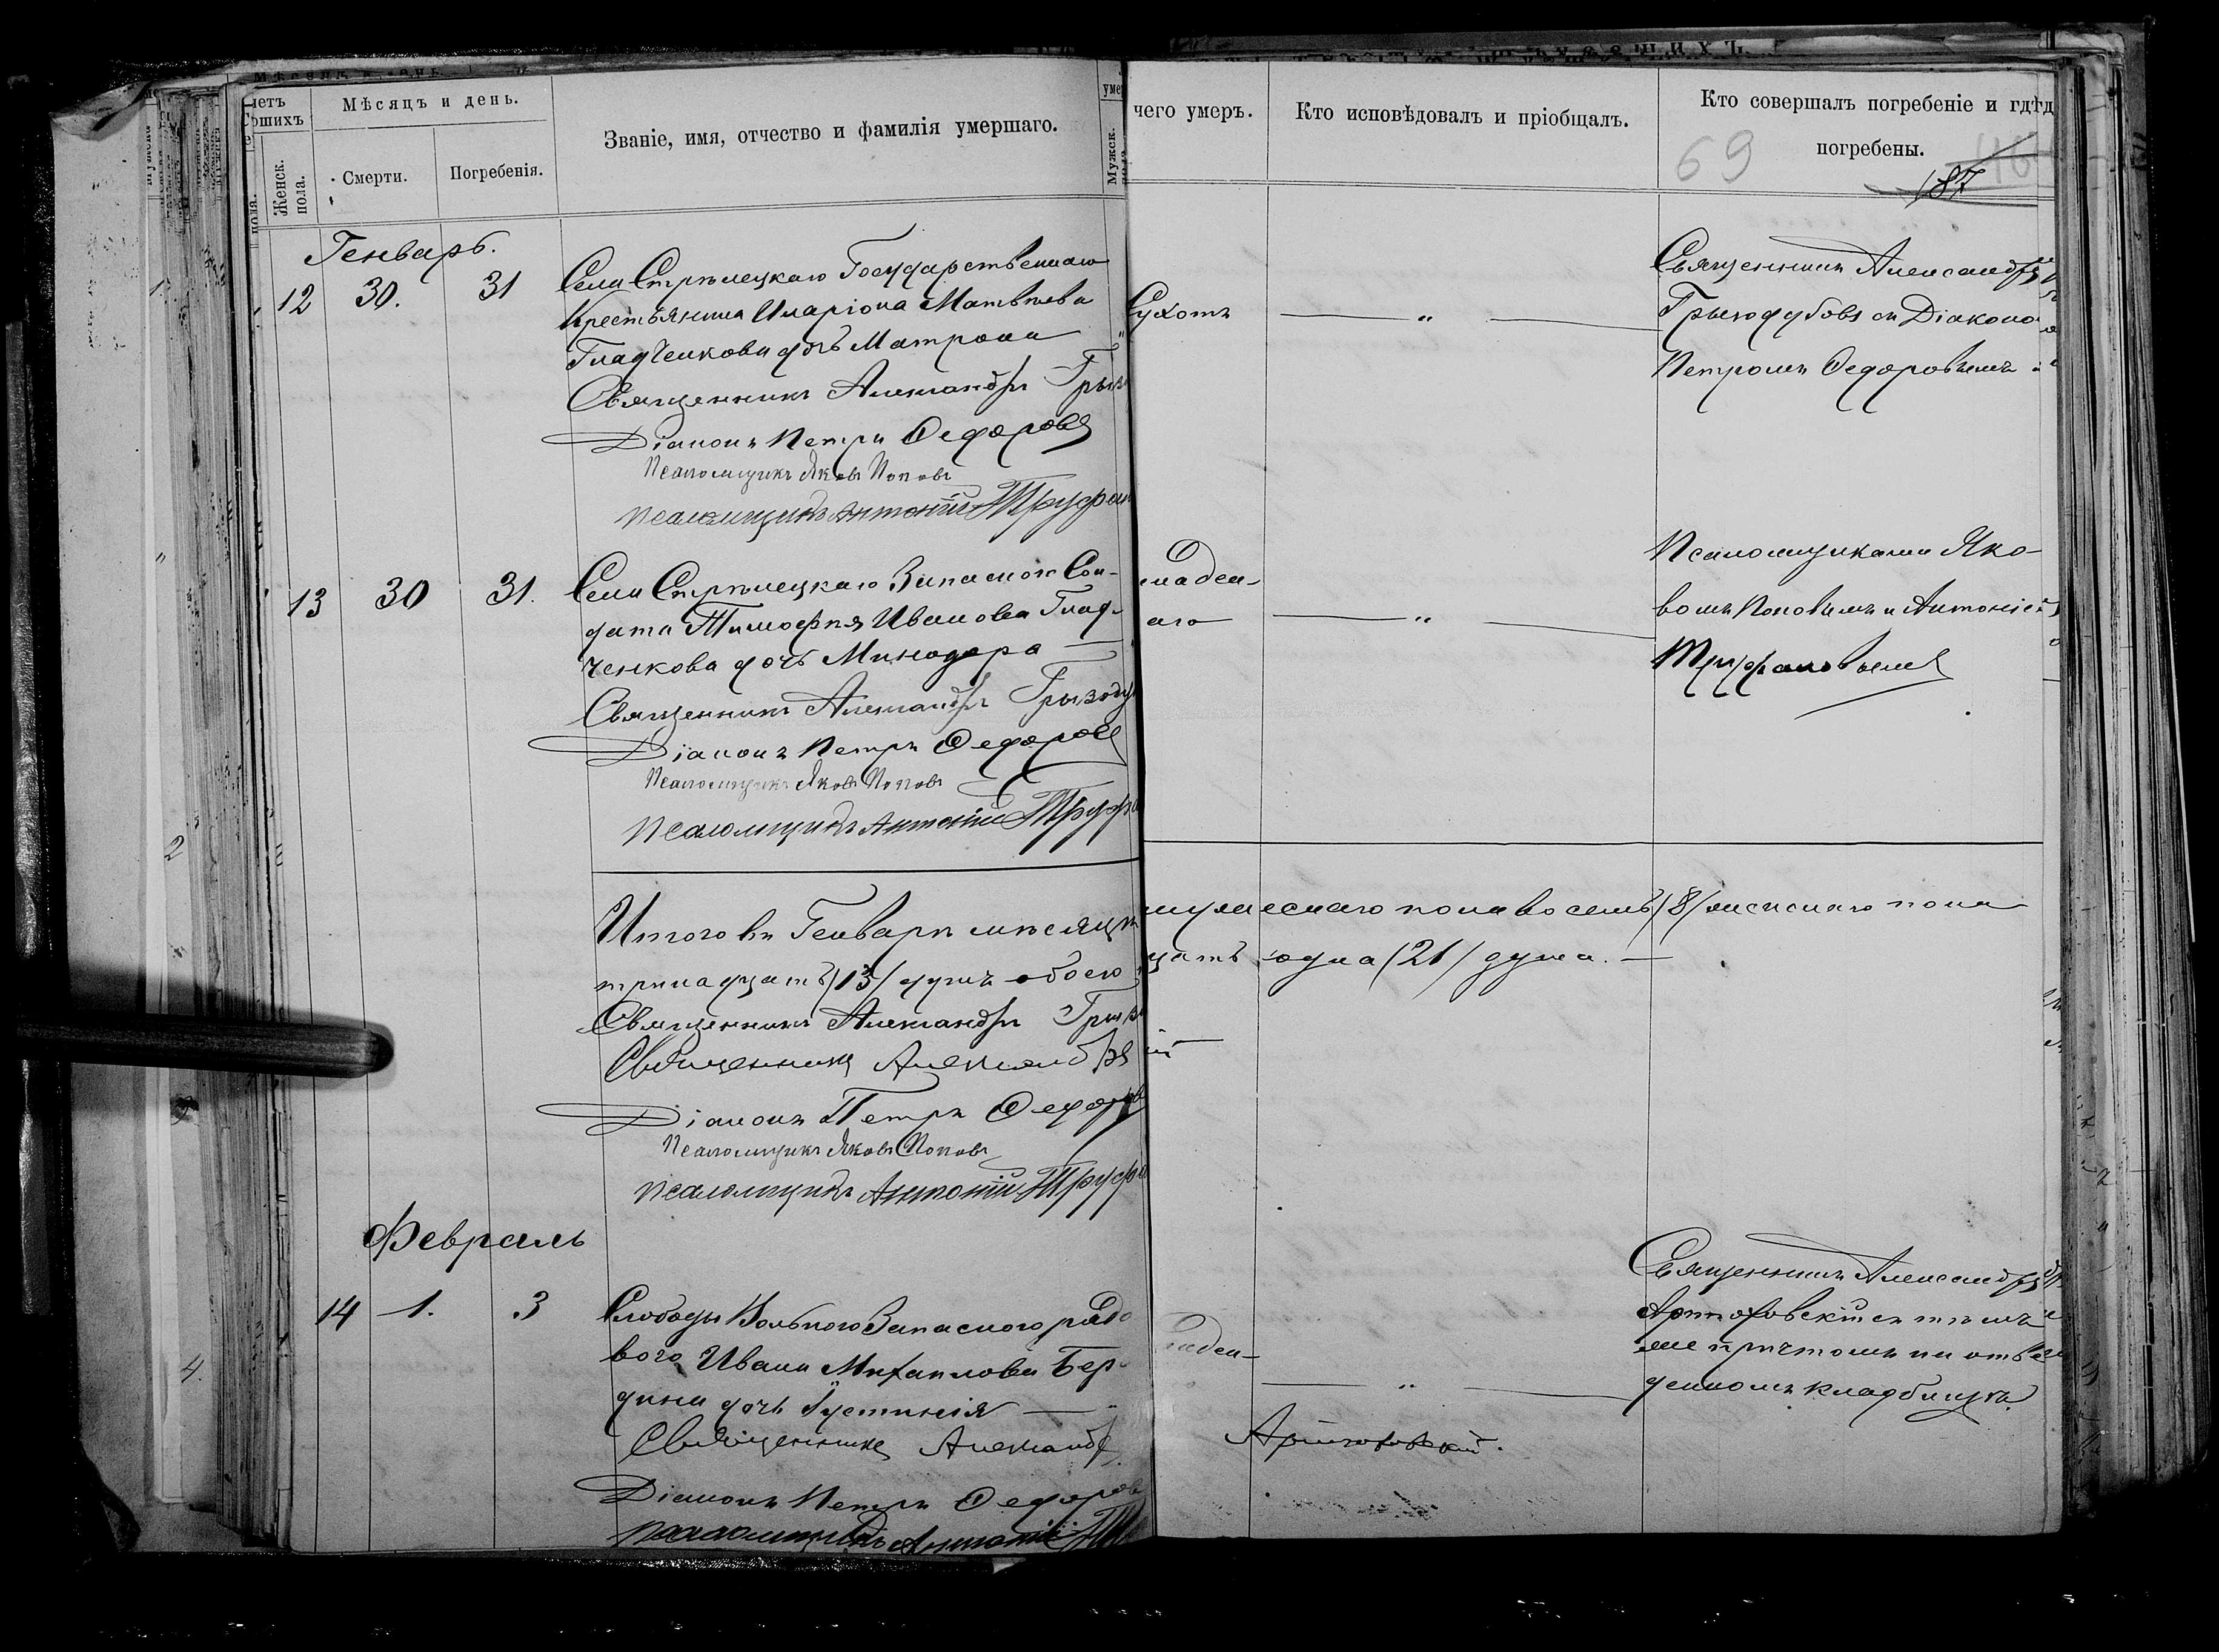 Мѣсяцъ и день.
Смерти.
Погребенія.
Женск. пола.
Званіе, имя, отчество и фамилія умершаго.
Мужск.
Генварь.
12 30. 31
Села Стрѣлецкаго Государственнаго
Крестьянина Иларіона Матвѣева
Гладченкова дочь Матрона
Священникъ Александръ
Діаконъ Петръ Ѳедоровъ
Псаломщикъ Яковъ Поповъ
Псаломщикъ Антоній
13 30 31.
Села Стрѣлецкаго Запаснаго Сол-
дата Тимофѣя Иванова Глад-
ченкова дочь Минодора
Священникъ Александръ
Діаконъ Петръ Ѳедоровъ
Псаломщикъ Яковъ Поповъ
Псаломщикъ Антоній
Итого въ Генварѣ мѣсяцѣ
тринадцать /13/ душъ обоего
Священникъ Александръ
Священникъ Александръ
Діаконъ Петръ Ѳедоровъ
Псаломщикъ Яковъ Поповъ
Псаломщикъ Антоній
Февраль
14 1. 3
Слободы Вольного Запасного рядо
вого Ивана Михаилова Бер-
дина дочь Іустинія
Священникъ Александръ
Діаконъ Петръ Ѳедоровъ
Псаломщикъ Антоній
чего умеръ.
Кто исповѣдовалъ и пріобщалъ.
Кто совершалъ погребеніе и гдѣ
погребены.
69
187
Священникъ Александръ
Грызодубовъ съ Діакономъ
Петромъ Ѳедоровымъ и
Псаломщиками Яко-
вомъ Поповымъ и Антоніемъ
Труфановымъ
мужескаго пола восемь /8/ женскаго пола
одна /21/ душа.
Священникъ Александръ
Артюховскій съ тѣмъ
же причтомъ на отве
денномъ кладбищѣ
Артюховскій.